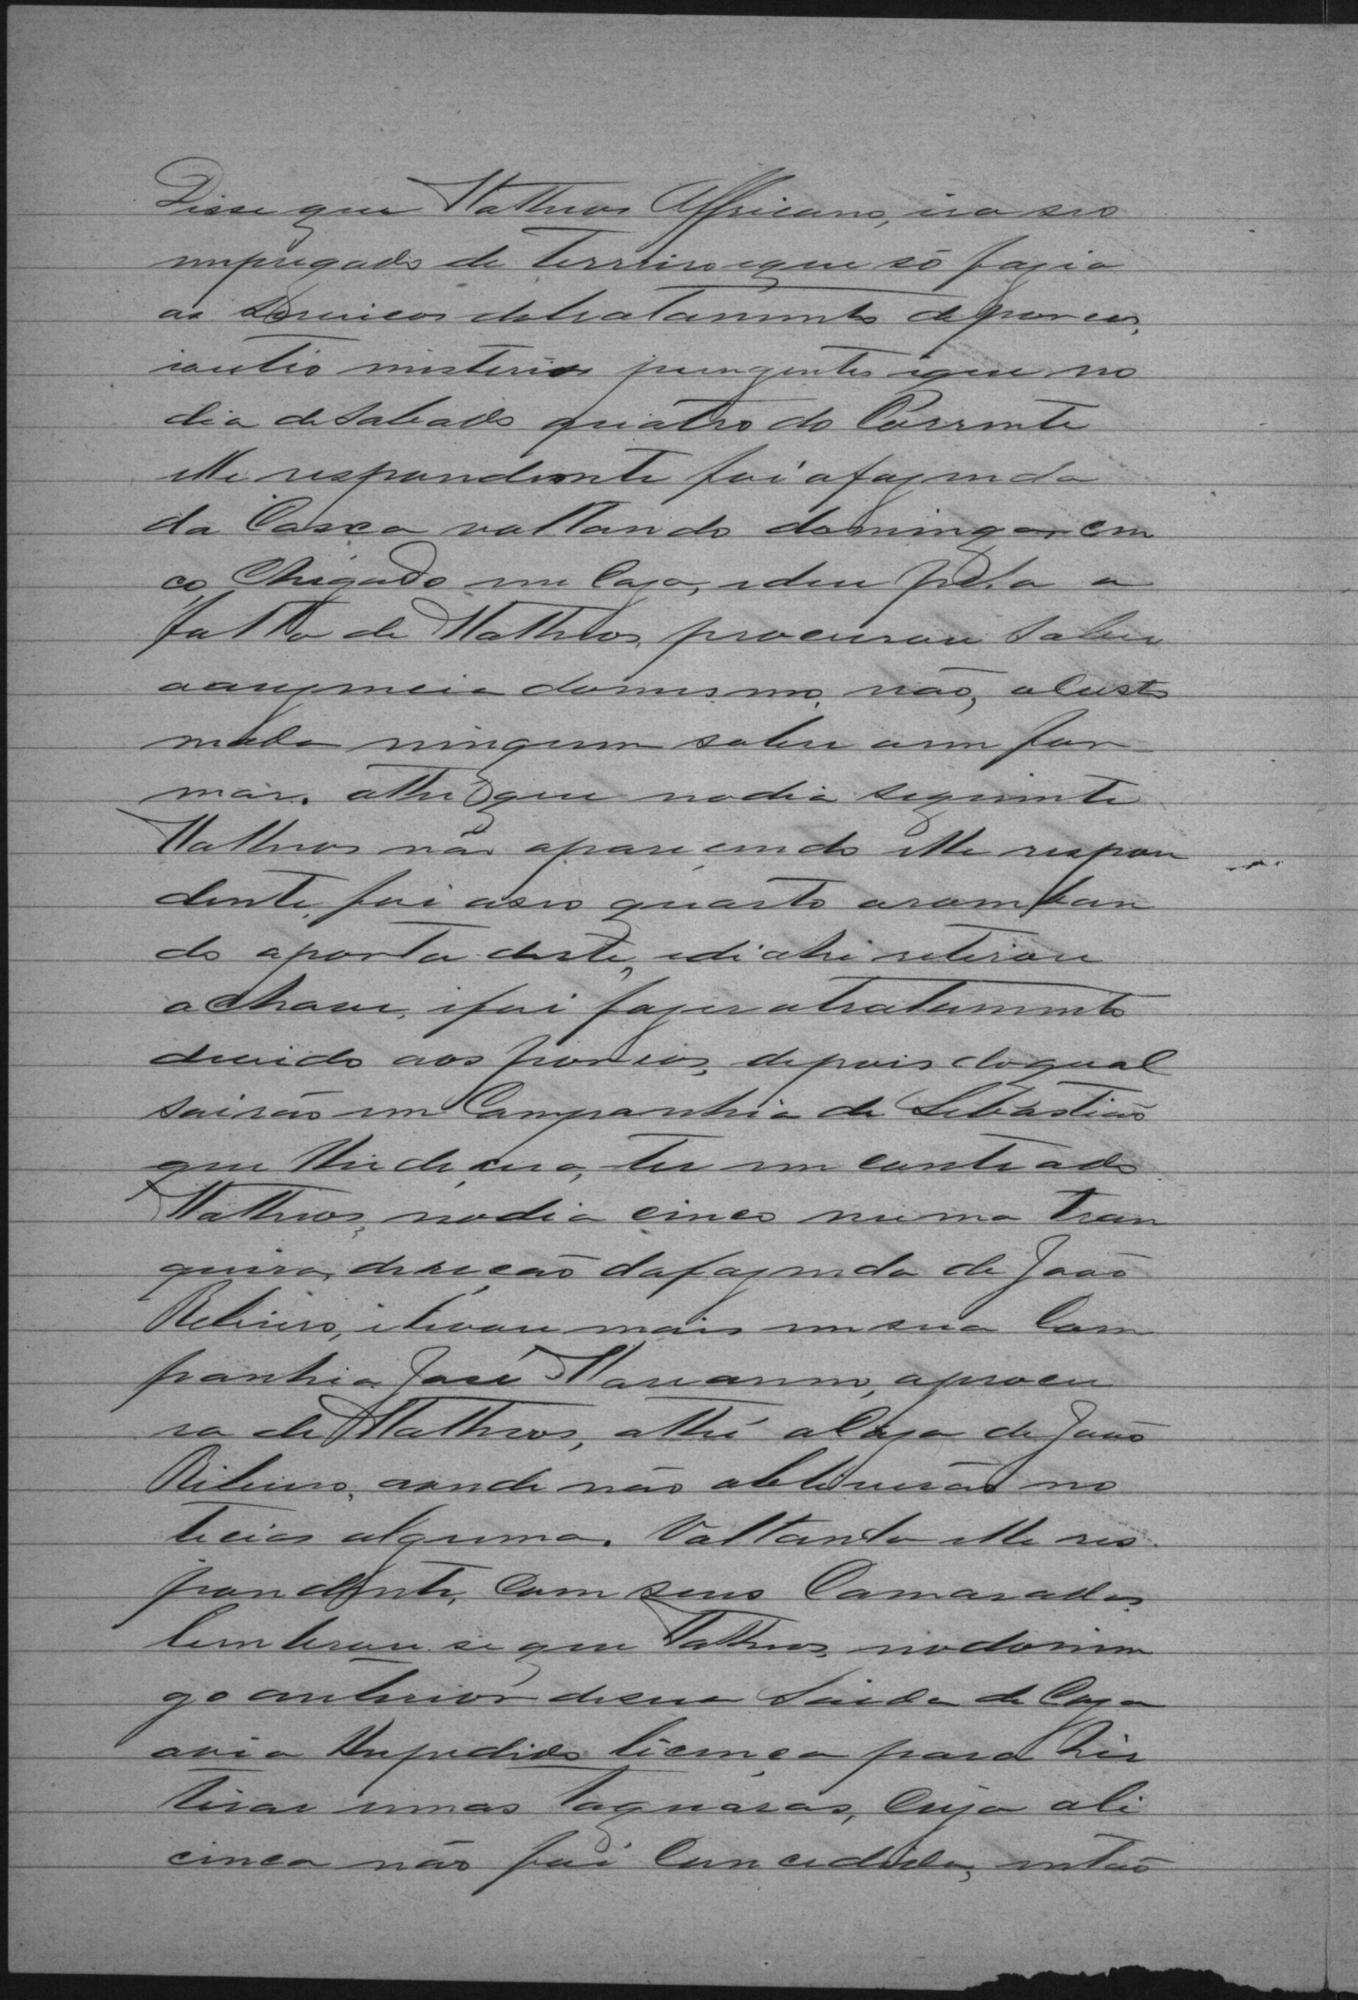 Disse que Matheos Affricano, era seo
impregado de terreiro e que só fazia
os serviços do tratamento de porcos,
i outro misterios pungentes e que no
dia de Sabado quatro do Corrente
elle respondente foi a fazenda
da Casca voltando domingo cin
co, Chegado em Caza, e deu pela a
falta de Matheos, procurou saber
a auzencia do mesmo, não,
nada ninguem sabia a um for
mar. athé que no dia seguinte
Matheos não apareçendo elle respon
dente, foi a seo quarto aromban
do a porta deste, e di ahi retirou
a Chave, i foi fazer o tratamento
devido aos porcos, depois do qual
sairão em Companhia de Sebastião
que lhe dicera, ter em contrado
Matheos, no dia cinco numa tran
queira, direção da fazenda de João
Ribeiro, i levou mais em sua Com
panhia José Marianno, a procu
ra de Matheos, athé a Caza de João
Ribeiro, aonde não obtiverão no
ticias alguma. Voltando elle res
pondente, com seus Camaradas
lembrou se que Matheos, no domin
go anterior de sua saida de Caza
avia lhe pedido licença para hir
tirar umas taquaras, Cuja ali
cença não foi Concedida, então